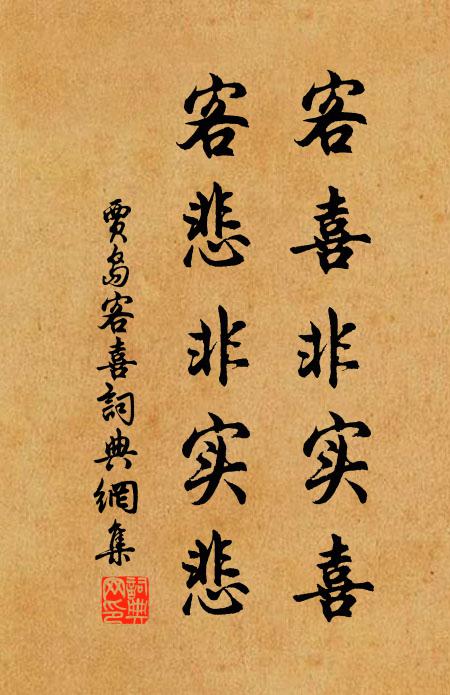 客喜非实喜
客悲非实悲
贾岛客喜詞典網集
詞典网印